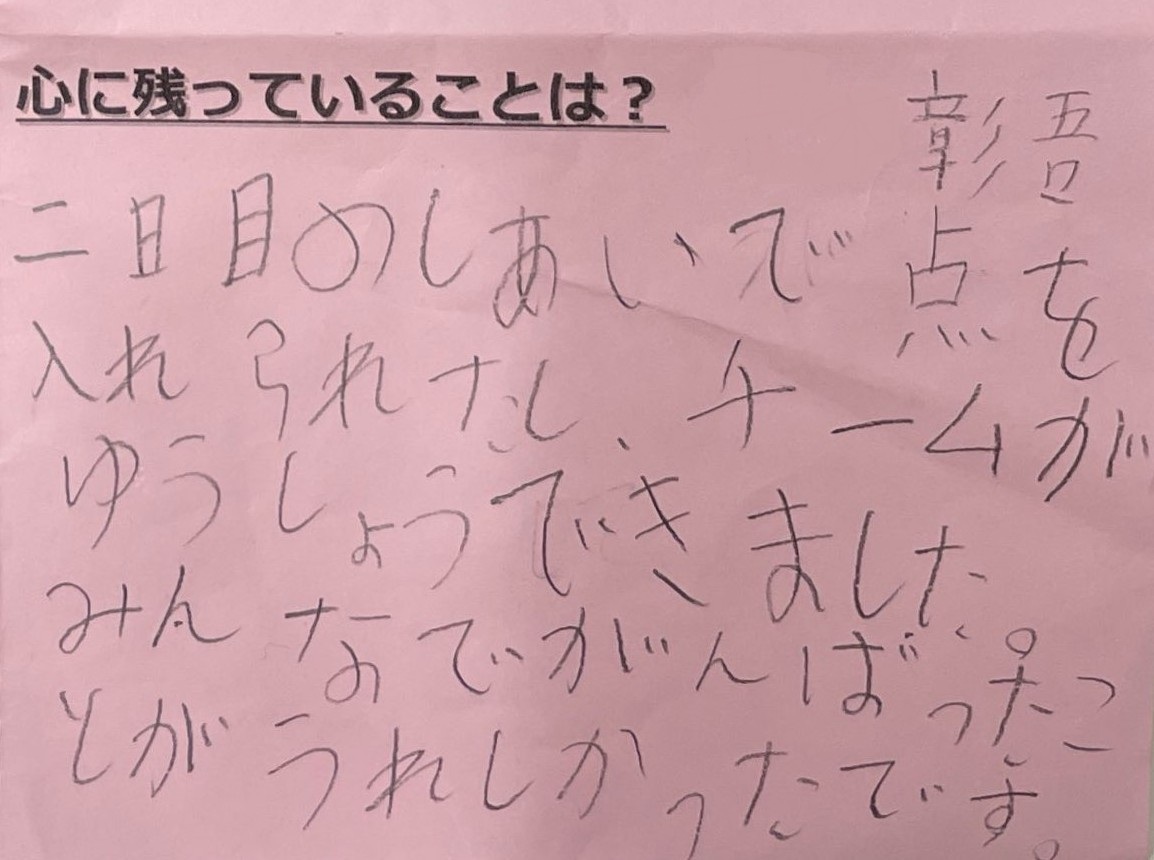 心に残っていることは？
彰吾
二日目のしあいで点を
入れられたし、チームが
ゆうしょうできました。
みんなでがんばったこ
とがうれしかったです。